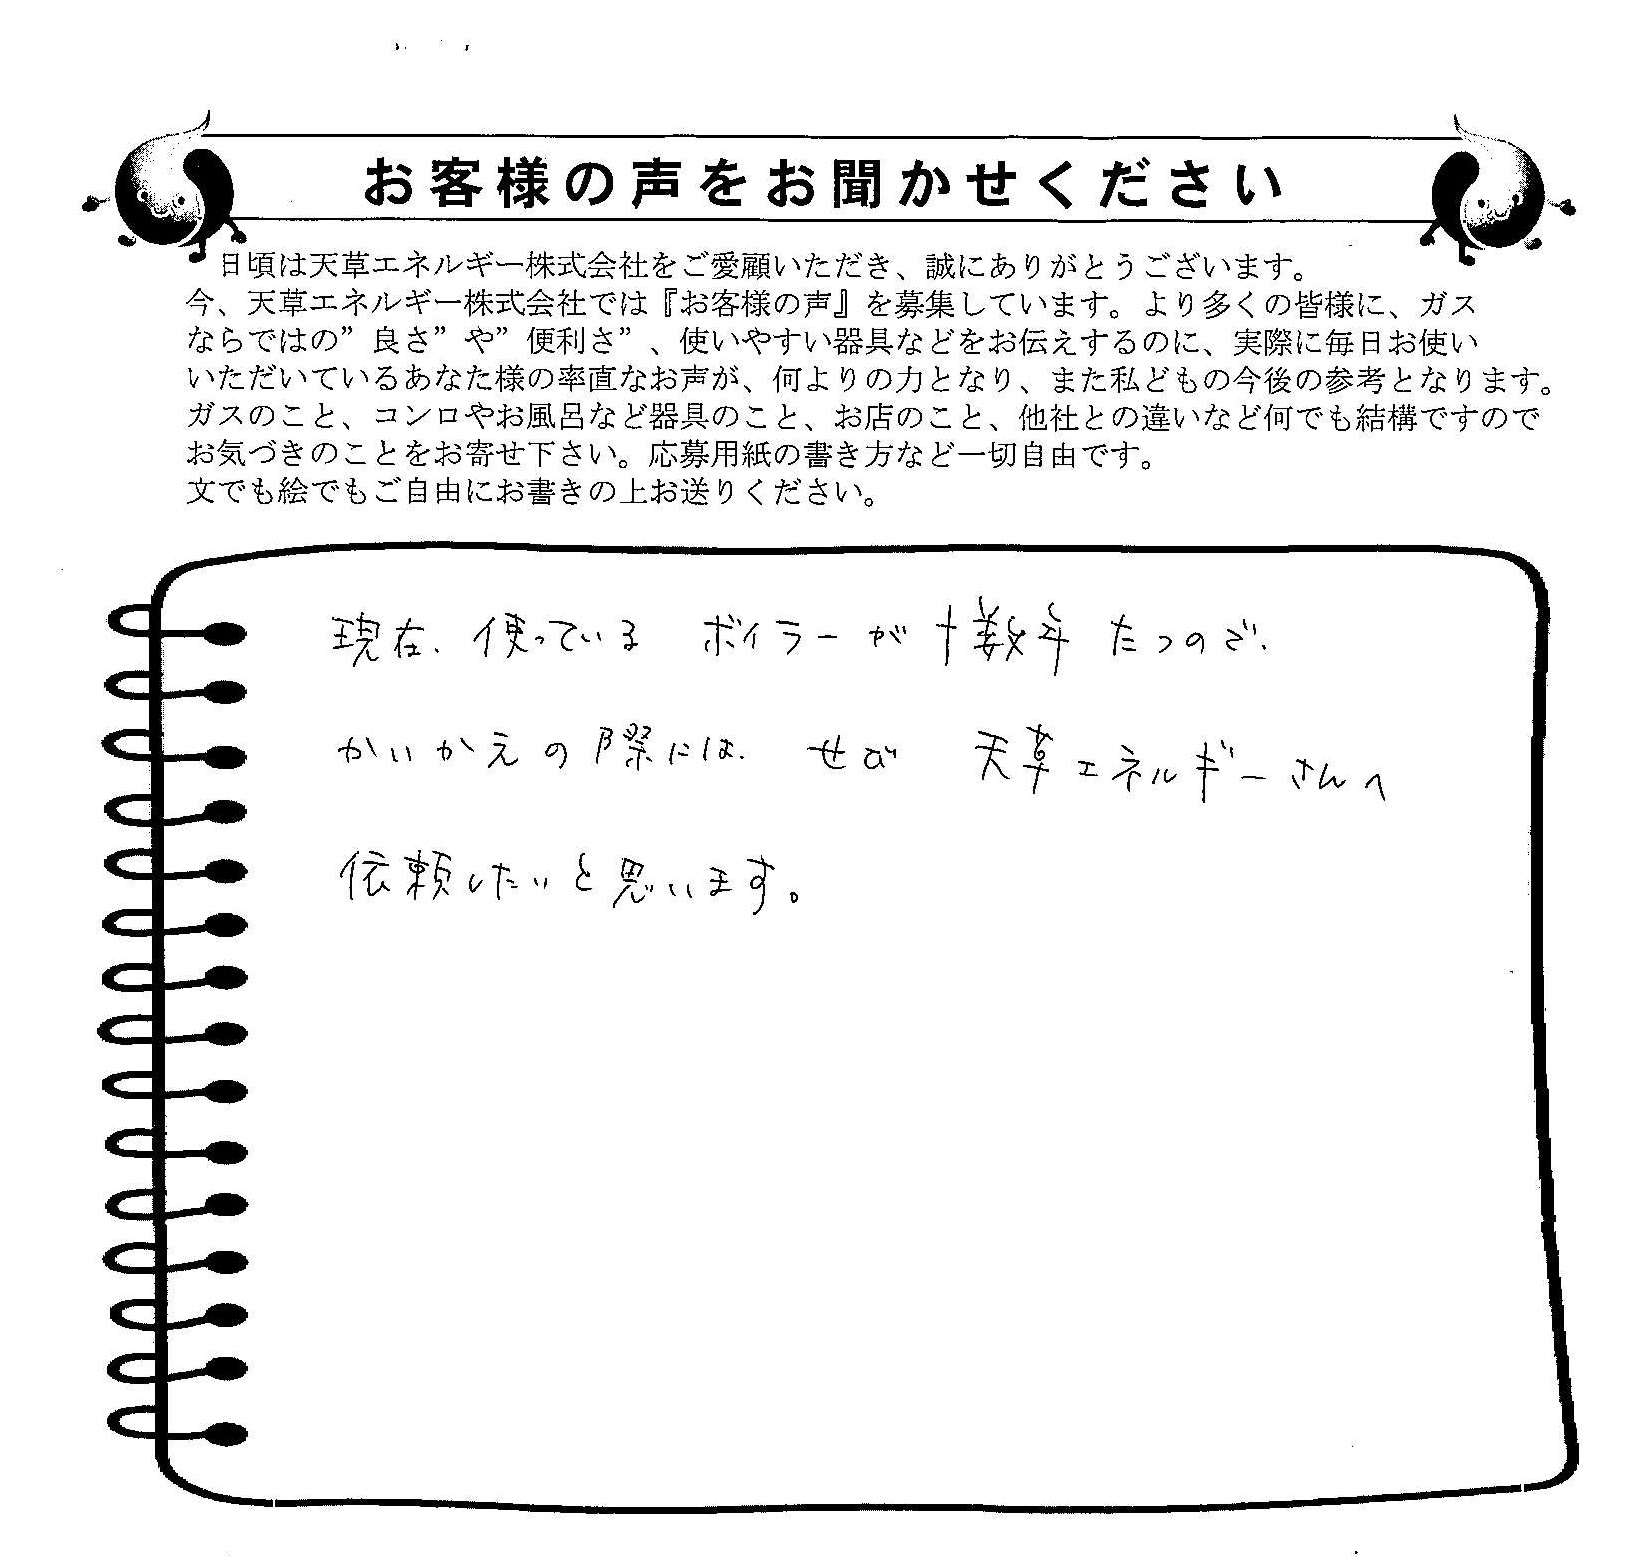 お客様の声をお聞かせください
日頃は天草エネルギー株式会社をご愛顧いただき、誠にありがとうございます。
今、天草エネルギー株式会社では『お客様の声』を募集しています。より多くの皆様に、ガス
ならではの”良さ”や”便利さ”、使いやすい器具などをお伝えするのに、実際に毎日お使い
いただいているあなた様の率直なお声が、何よりの力となり、また私どもの今後の参考となります。
ガスのこと、コンロやお風呂など器具のこと、お店のこと、他社との違いなど何でも結構ですので
お気づきのことをお寄せ下さい。応募用紙の書き方など一切自由です。
文でも絵でもご自由にお書きの上お送りください。
現在、使っている ボイラーが十数年 たつので、
かいかえの際には、ぜひ 天草エネルギーさんへ
依頼したいと思います。